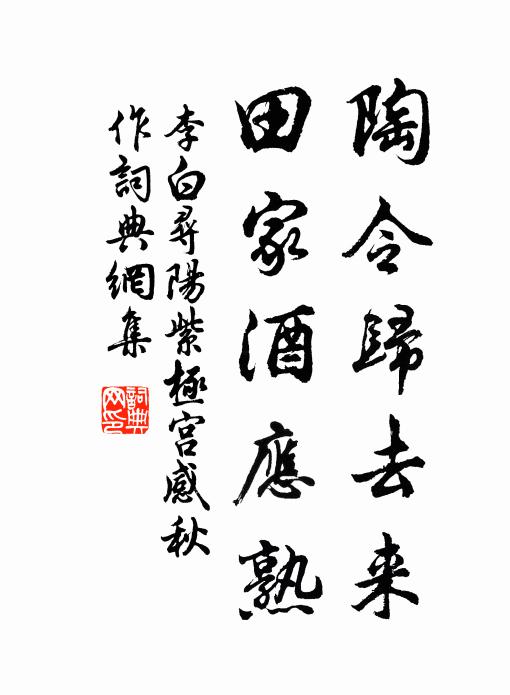 陶令歸去来
田家酒應熟
李白尋陽紫極宫感秋
作詞典網集
詞典
网印